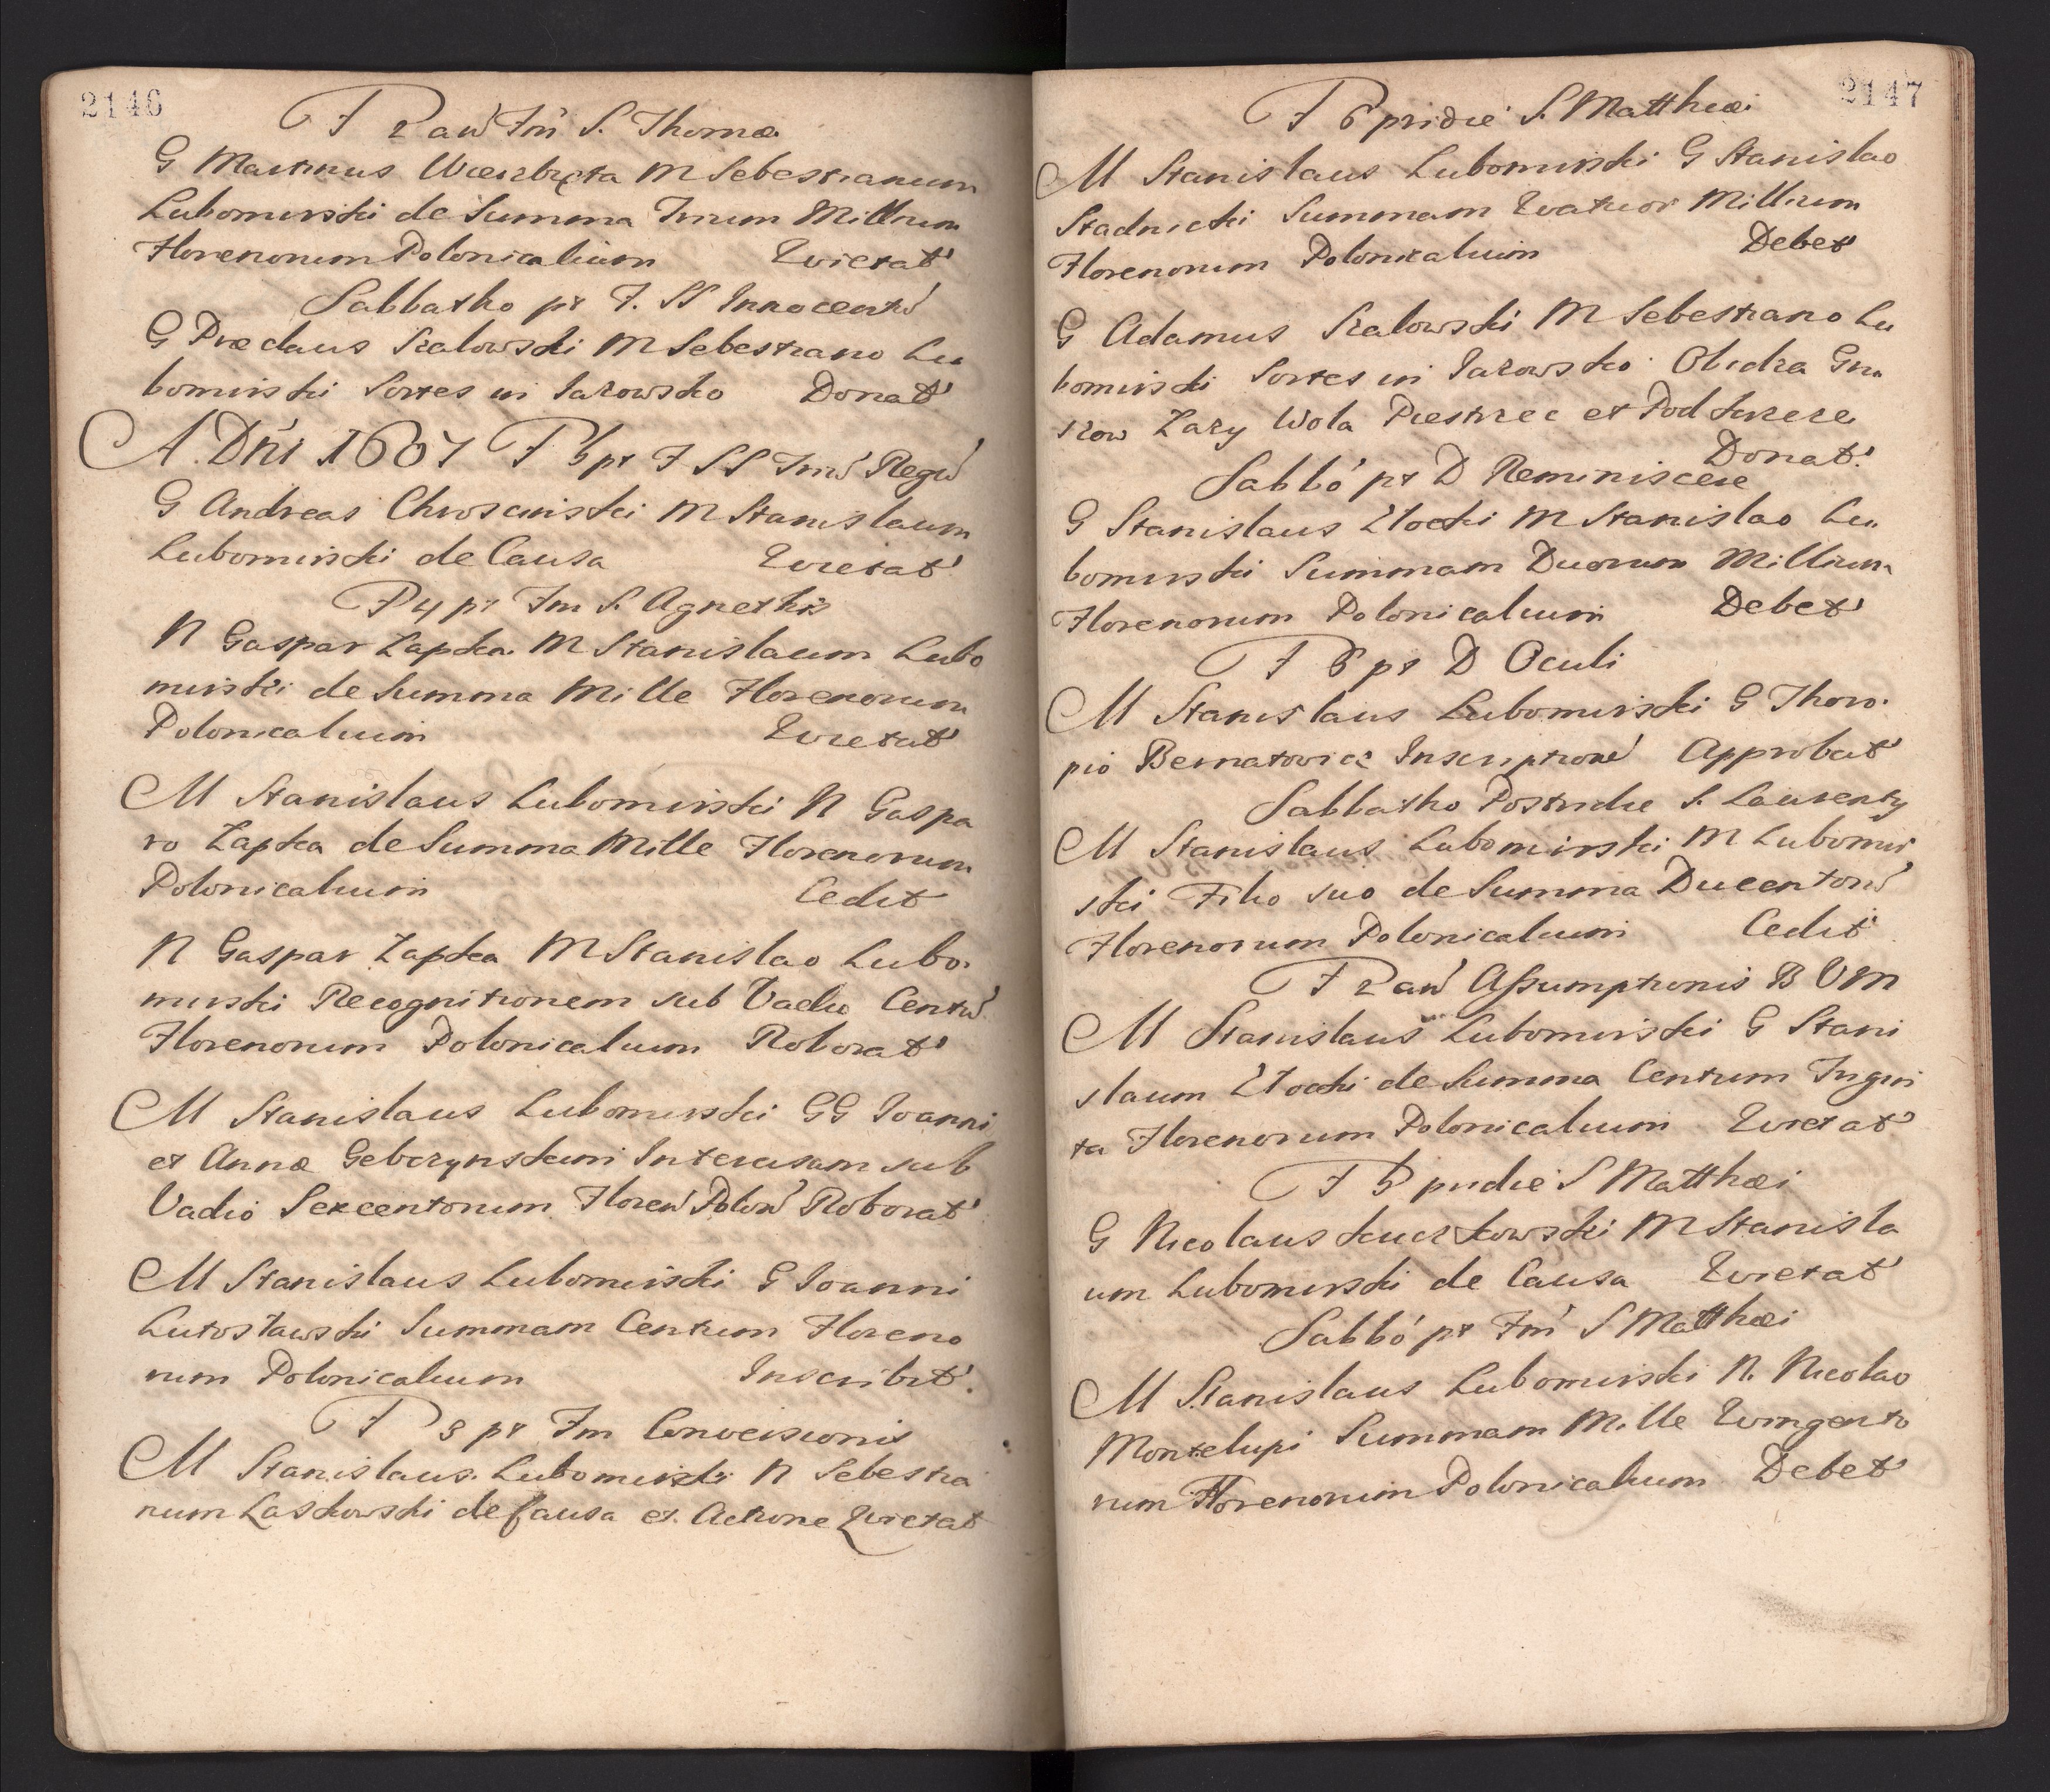 2146
F 2 an Fm S. Thomæ
G Martinus Wierzbięta M Sebestianum
Lubomirski de Summa Trium Millium
Florenorum Polonicalium Quietat
Sabbatho pt F. SS Innocentu
G Prædaus Szalowski M Sebestiano Lu
bomirski Sortes in Iarowsko Donat
A. Dni 1607 F 6 pt F SS Triu Regu
G Andreas Chroscinski M Stanislaum
Lubomirski de Causa Quietat
F 4 pt Fm S. Agnethis
N Gaspar Lapka M Stanislaum Lubo
mirski de Summa Mille Florenorum
Polonicalium Quietat
M Stanislaus Lubomirski N Gaspa
ro Lapka de Summa Mille Florenorum
Polonicalium Cedit
N Gaspar Lapka M Stanislao Lubo.
mirski Recognitionem sub Vadio Centu
Florenorum Polonicalium Roborat
M Stanislaus Lubomirski GG Ioanni
et Annæ Gebczynskim Intercisam sub
Vadio Sexcentorum Floren Polon Roborat
M Stanislaus Lubomirski G Ioanni
Lutosławski Summam Centum Floreno
rum Polonicalium Inscribit.
F 3 pt Fm Conversionis
M Stanislaus Lubomirski N Sebestia
num Laskowski de Causa et Actione Quietat
2147
F 6 pridie S. Matthæi
M Stanislaus Lubomirski G Stanislao
Stadnicki Summam Quatuor Millium
Florenorum Polonicalium Debet
G Adamus Szalowski M Sebestiano Lu
bomirski Sortes in Iarowsko Obidza Gru
szow Zary Wola Piestrzec et Pod
Donat.
Sabbo pt D Reminiscere
G Stanislaus Włocki M Stanislao Lu.
bomirski Summam Duorum Millium
Florenorum Polonicalium Debet
F 6 pt D Oculi
M Stanislaus Lubomirski G Thoro.
pio Bernatowicz Inscriptione Approbat
Sabbatho Postridie S. Laurenty
M Stanislaus Lubomirski M Lubomir
ski Filio suo de Summa Ducenton
Florenorum Polonicalium Cedit
F 2 an Assumptionis B V M
M Stanislaus Lubomirski G Stani
slaum Włocki de Summa Centum Trigin
ta Florenorum Polonicalium Quietat
F 5 pridie S Matthæi
G Nicolaus Kuczkowski M Stanisla
um Lubomirski de Causa Quietat
Sabbo pt Fm S Matthæi
M Stanislaus Lubomirski N. Nicolao
Montelupi Summam Mille Quingento
rum Florenorum Polonicalium Debet